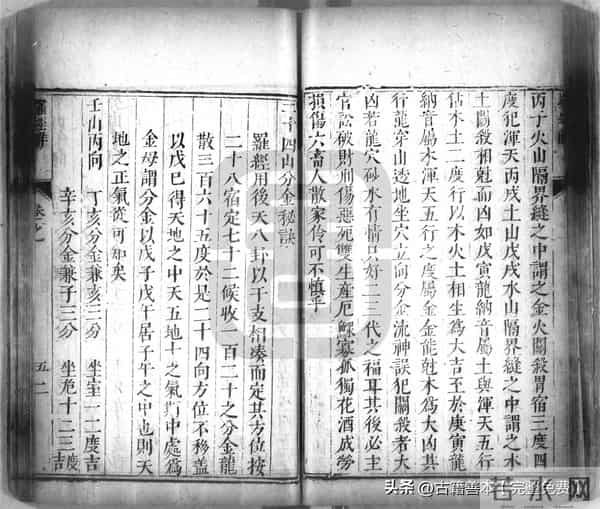 丙子火山隔界縫之中謂之金火鬬殺胃宿三度四
度犯渾天丙戌土山戊戌水山隔界縫之中謂之木
土鬬殺相尅而凶如戊寅龍納音屬土與渾天五行
木土二度行以木火土相生為大吉至於庚寅龍
納音屬木渾天五行之度屬金金能尅木為大凶其
行龍穿山透地坐穴立向分金流神誤犯鬬殺者大
凶若龍穴砂水有情只好二三代之福耳其後必主
官訟破財刑傷惡死雙生産厄鰥寡孤獨花酒成勞
損傷六畜人散家伶可不慎乎
二十四山分金秘訣
羅經用後天八卦以干支相湊而定其方位按
二十八宿定七十二候收一百二十之分金龍
散三百六十五度於是二十四向方位不移蓋
以戊巳得天地之中天五地十之氣斯中處為
金母謂分金以戊子戊午居子午之中也則天
地之正氣從可知矣
壬山丙向 丁亥分金兼亥三分 坐室一二度吉
辛亥分金兼子三分 坐危十二三度吉
五二
头条 @古籍善本